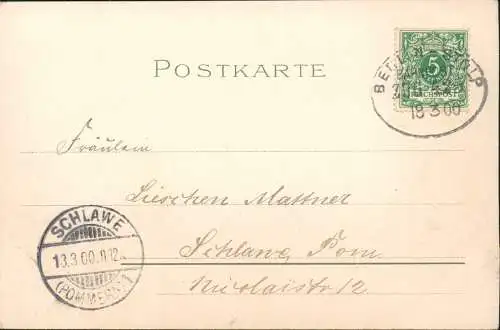 POSTKARTE
BERLIN - STOLP
5
REICHSPOST
13 3 00
Fräulein
Lieschen Mattner
Schlawe Pom.
Nicolaistr 12
SCHLAWE
13.3.00.
(POMMERN)